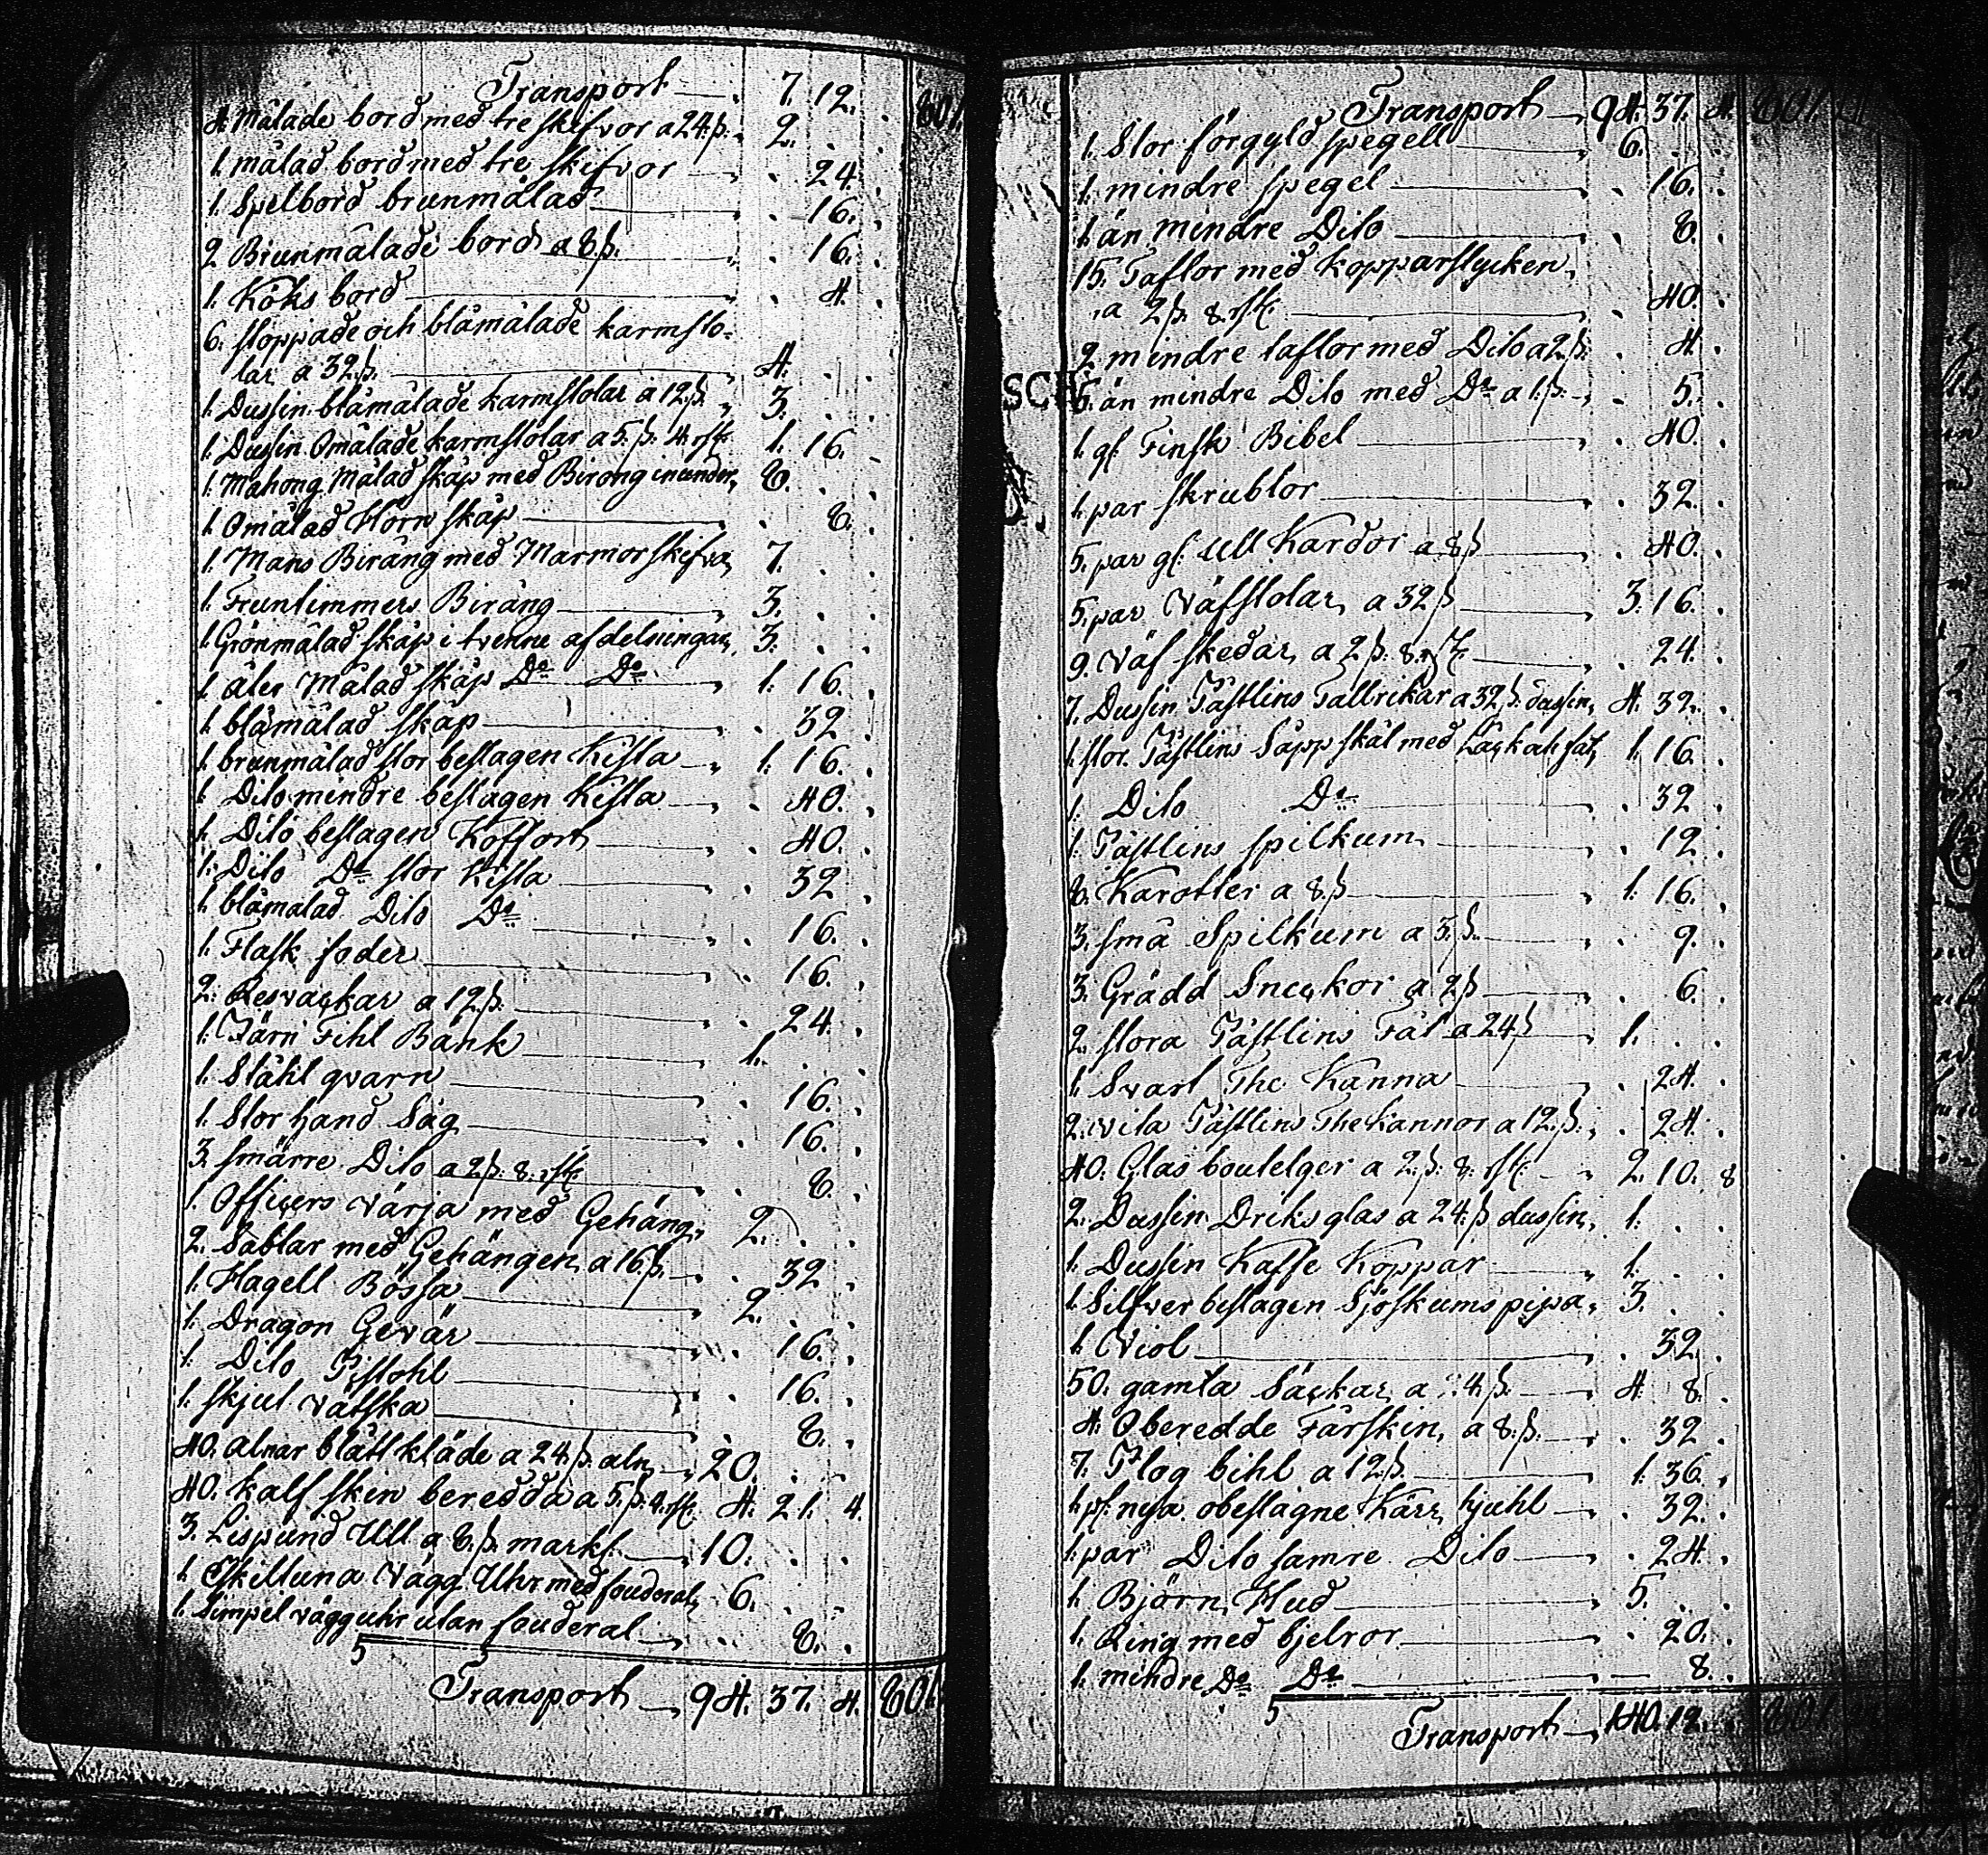 Transport 7. 12. 601.
4. Målade bord med tre skifvor a 24 ß. 2.
1. målad bord med tre skifvor 24.
1. Spelbord brunmålad 16.
2 Brunmålade bord a 8 ß. 16.
1. Köks bord 4.
6. stoppade och blåmålade karmsto-
lar a 32 ß. 4.
1. Dussin blåmålade karmstolar a 12 ß. 3.
1. Dussin Omålade karmstolar a 5. ß. 4 rst. 1. 16.
1. Mahong. Målad skåp med Birong inunder, 8.
1. Omålad Hörn skåp 8.
1. Mans Birång med Marmor skifva, 7.
1. Fruntimmers Birång 3.
1. Grönmålad skåp i tvenne afdelningar, 3.
1. åler Målad skåp Do Do 1. 16.
1. blåmålad skåp 32
1. brunmålad stor beslagen Kista 1. 16.
1. Dito mindre beslagen Kista 40.
1. Dito beslagen Koffort 40.
1. Dito Do stor Kista 32
1. blåmalad Dito Do 16.
1. Flask foder 16.
2. Resvackar a 12 ß. 24.
1. Järn Fihl Bänk 1.
1. Ståhl qvarn 16.
1. Stor hand Såg 16.
3. smärre Dito a 2 ß. 8. rst. 8.
1. Officers värja med Gehäng, 2.
2. Sablar med Gehängen, a 16 ß. 32
1. Hagell Bössa 2.
1. Dragon Gevär 16.
1. Dito Pistohl 16.
1. skjul vätska 8.
40. alnar blått kläde a 24. ß. aln 20.
40. kalf skin beredda a 5. ß. 4. rst. 4. 21. 4.
3. Lispund Ull a 8. ß. markt. 10.
1. Eskilluna Vägg Uhr med fouderal, 6.
1. Simpel vägguhr utan fouderal 8.
Transport 94. 37. 4. 601.
Transport 94. 37. 4. 601.
1. Stor förgyld spegell 6.
1. mindre spegel 16.
1. än mindre Dito 8.
15. Taflor med kopparstycken,
a 2 ß. 8. rst. 40.
2. mindre taflor med Dito a 2 ß. 4.
5. än mindre Dito med Do a 1. ß. 5.
1. gl. Finsk Bibel 40.
1. par skrubtor 32.
5. par gl. Ull Kardor a 8 ß 40.
5. par Väfstolar, a 32 ß 3. 16.
9. Väf skedar, a 2 ß. 8. rst. 24.
7. Dussin Påstlins Tallrikar a 32 ß. dussin, 4. 32.
1. stor. Påstlins Såpp skål med Låck och fat, 1. 16.
1. Dito Do 32
1. Påstlins spilkum 12
8. Karotter a 8. ß 1. 16.
3. små Spilkum a 3. ß. 9.
3. Grädd Sneckor a 2 ß 6.
2. stora Påstlins Fat a 24 ß 1.
1. Svart The Kanna 24.
2. vita Påstlins Thekannor a 12. ß. 24.
40. Glas boutelger a 2. ß. 8. rst. 2. 10. 8
2. Dussin Driks glas a 24. ß dussin, 1.
1. Dussin Kaffe Koppar 1.
1. Silfver beslagen Sjöskums pipa, 3.
1. Viol 32.
50. gamla Säckar, a 4 ß. 4 8.
4. Oberedde Fårskin, a 8. ß. 32
7. Plog bihl a 12 ß. 1. 36.
1. pl. nya obeslagne Kärr hjuhl 32.
1. par Dito samre Dito 24.
1. Björn Hud 5.
1. Ring med bjelror 20.
1. mindre Do Do 8.
Transport 140. 12. 601